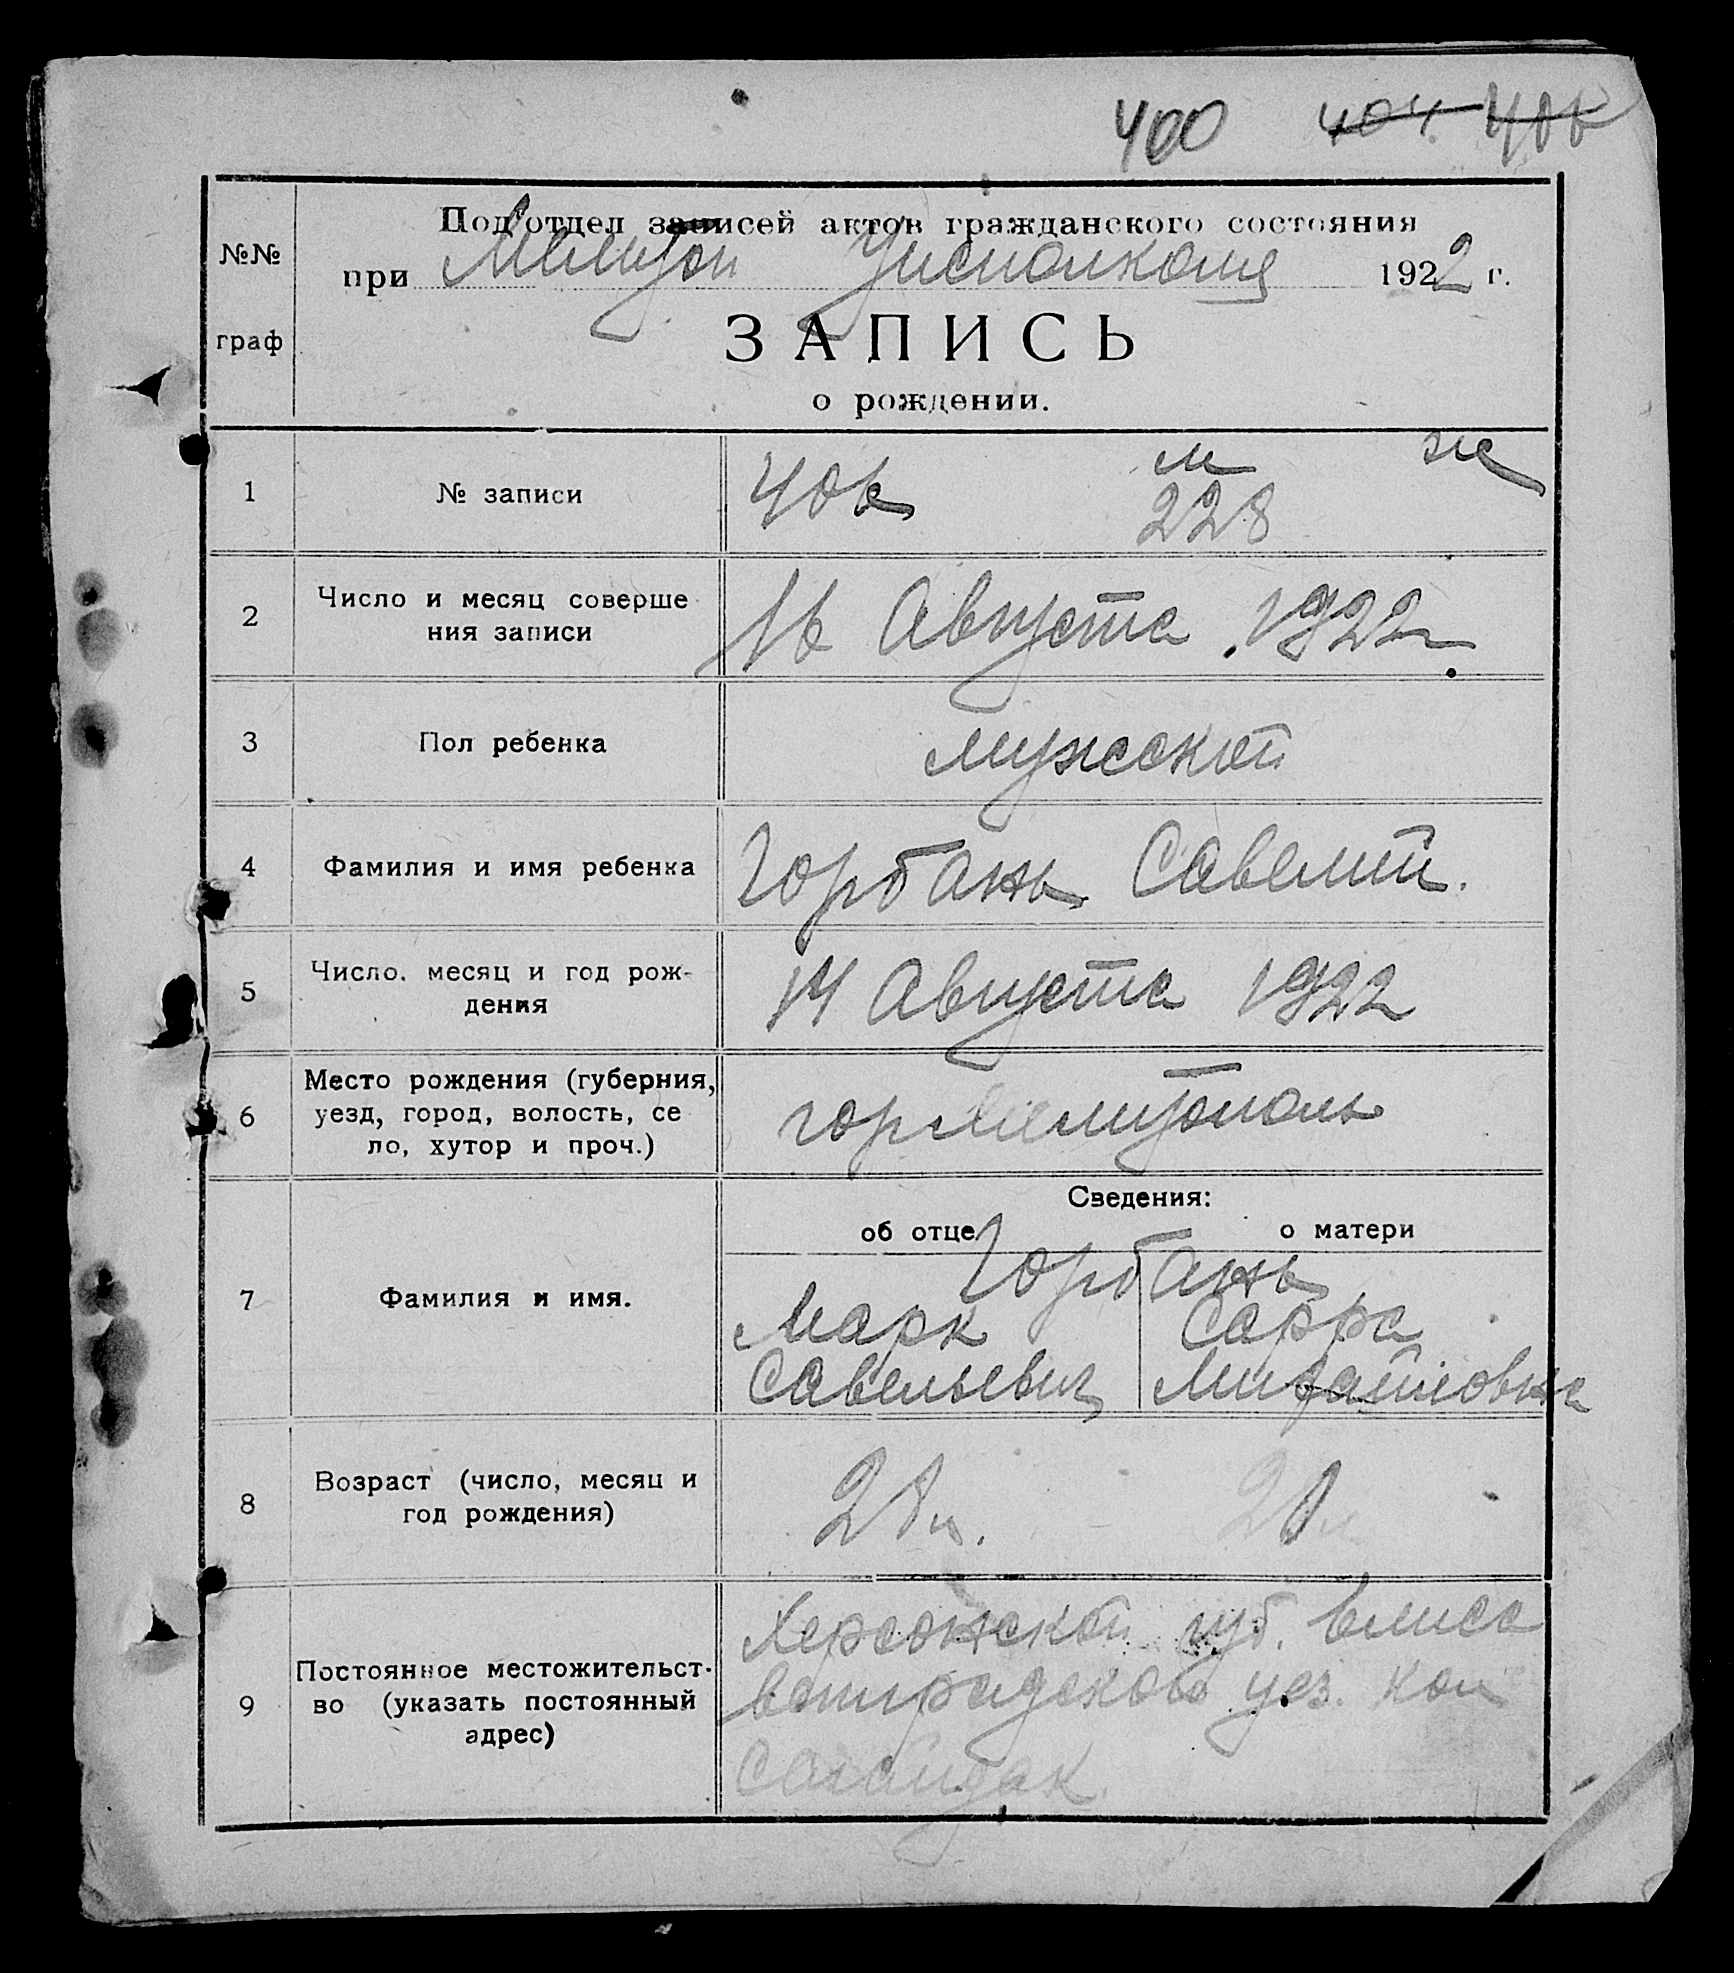 400 404 406
№№
граф
Под'отдел записей актов гражданского состояния
при Мелитоп Уисполкоме 1922 г.
ЗАПИСЬ
о рождении.
1 № записи 406 м ж
228
2 Число и месяц соверше
ния записи
16 Августа 1922 г.
3 Пол ребенка мужской
4 Фамилия и имя ребенка Горбань Савелий.
5 Число. месяц и год рож-
дения
14 Августа 1922
6 Место рождения (губерния,
уезд, город, волость, се
ло, хутор и проч.)
гор Мелитополь
Сведения:
об отце о матери
7 Фамилия и имя.
Горбань
Марк Сарра
Савельевич Михайловна
8 Возраст (число, месяц и
год рождения)
9 Постоянное местожительст-
во (указать постоянный
адрес)
Херсонской губ. Елиса
ветградского уез. кол
Сагайдак.